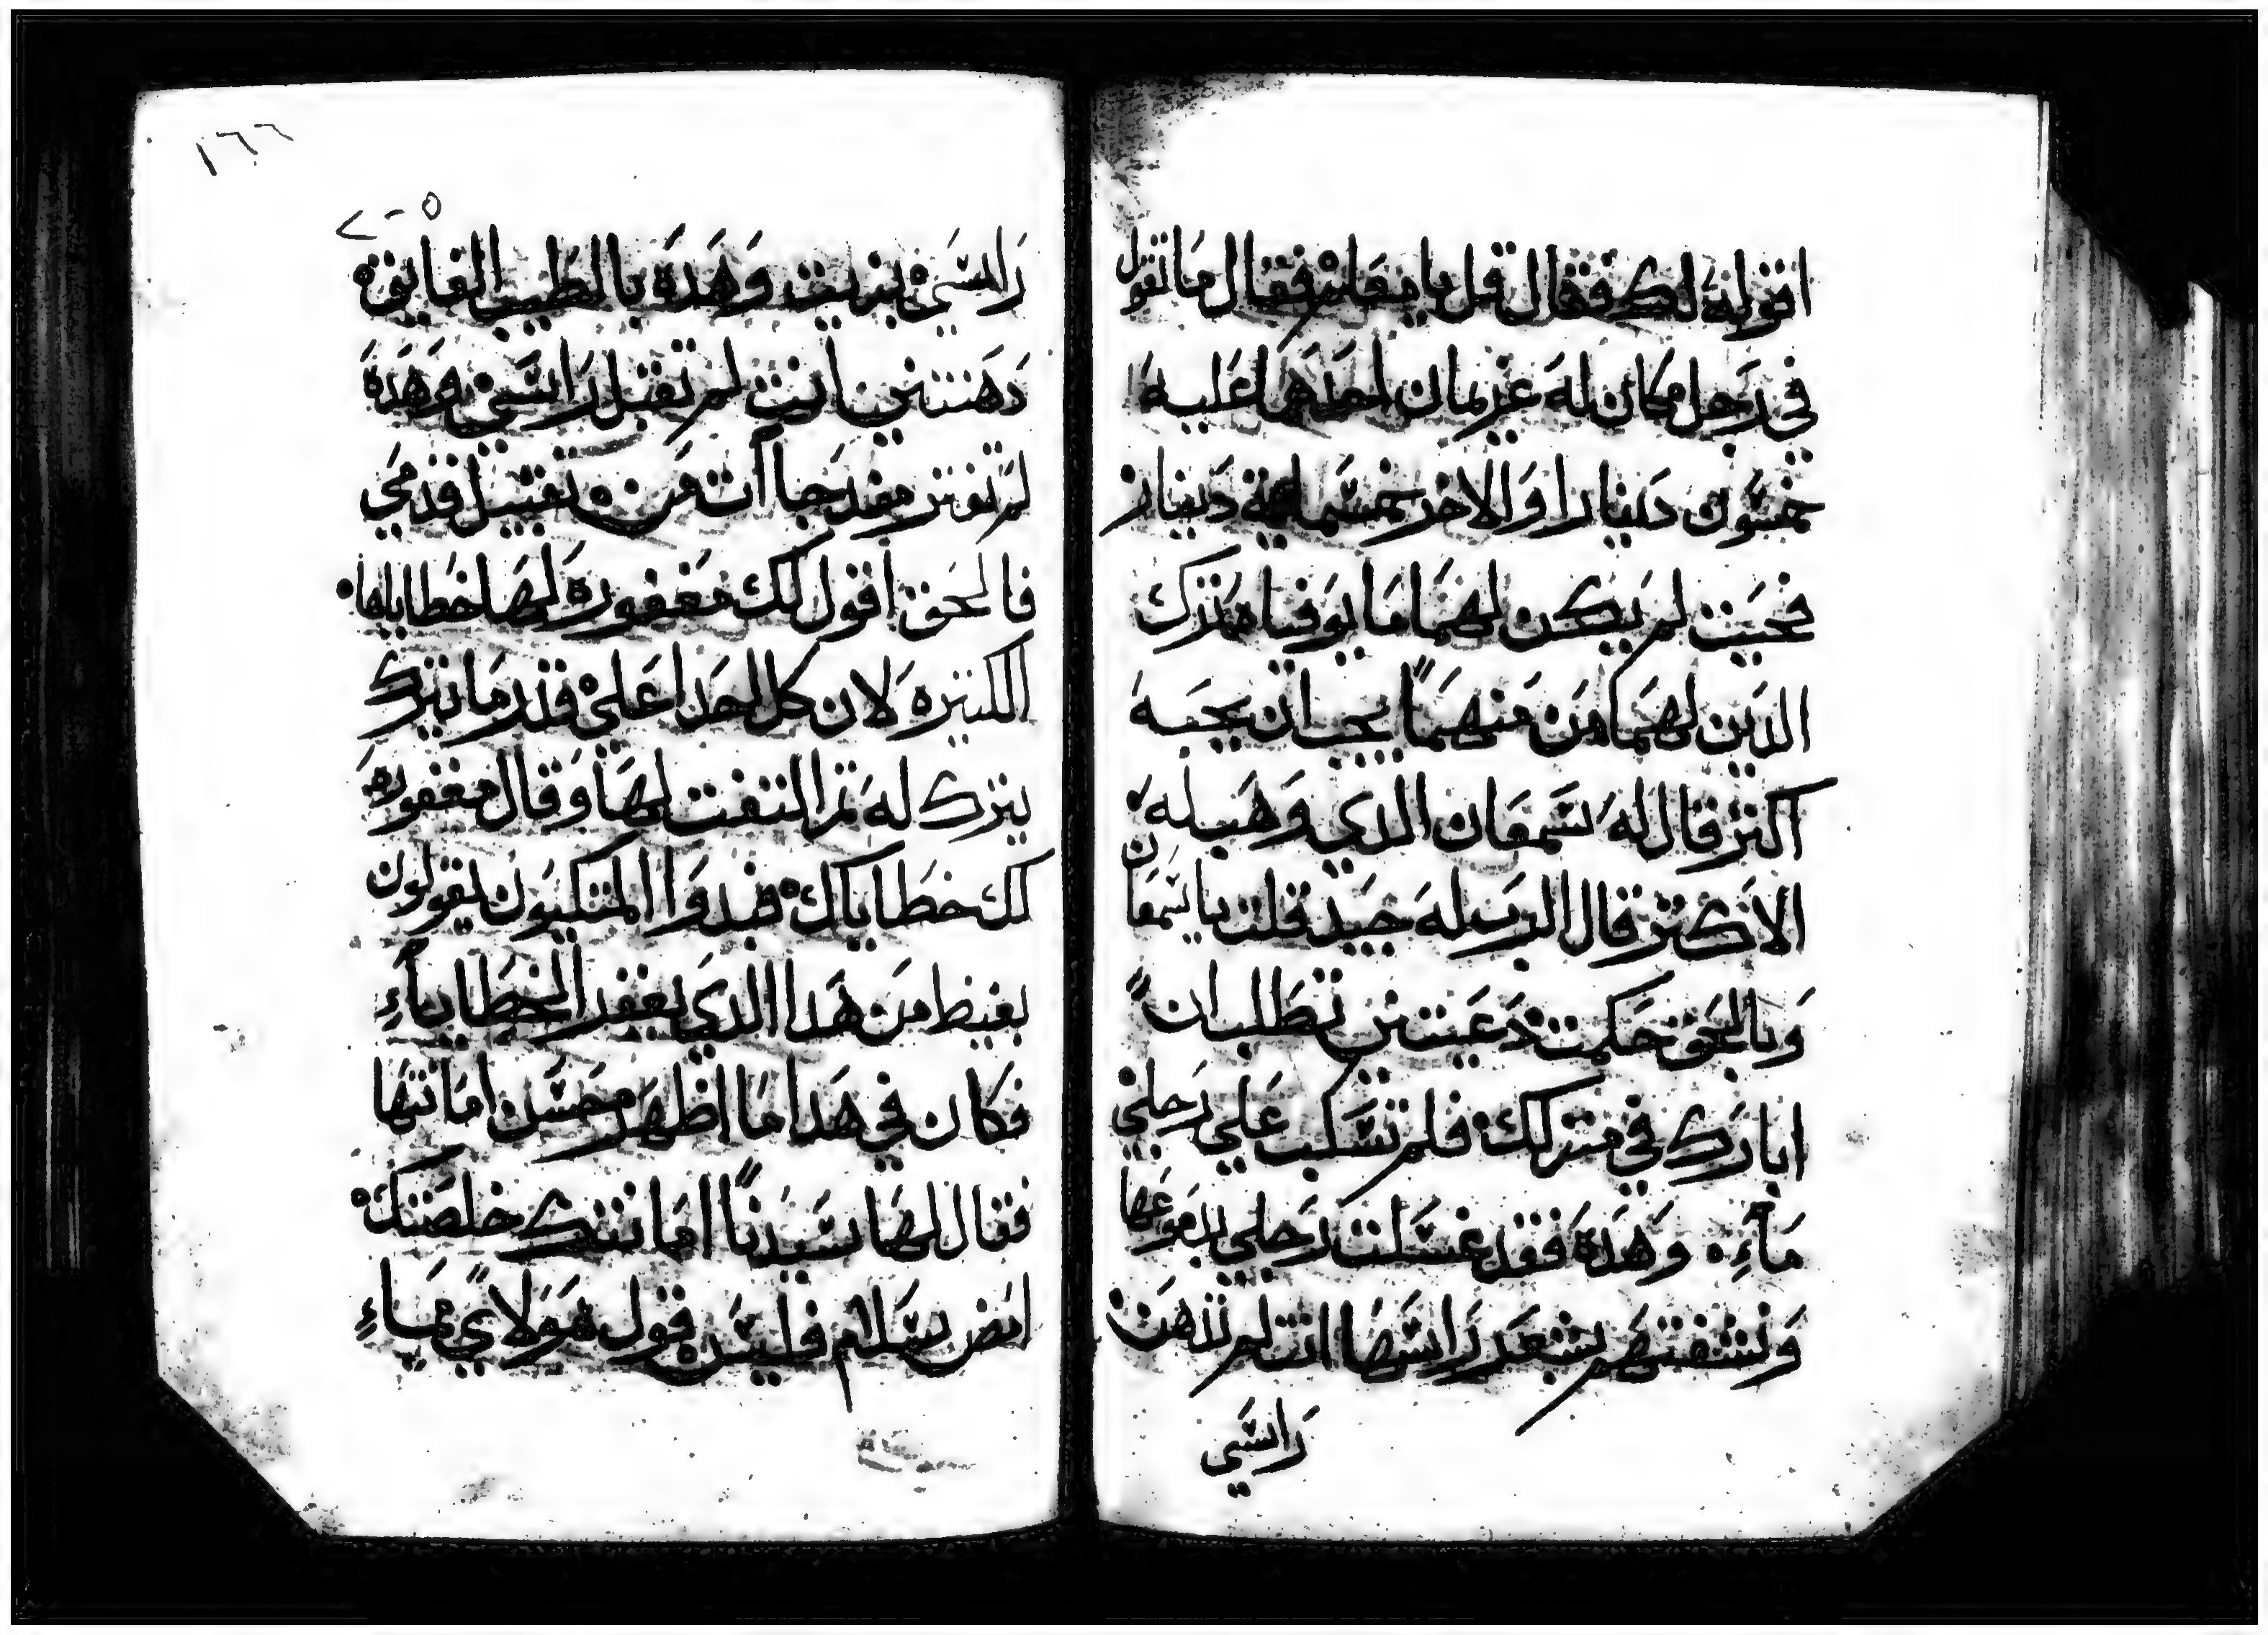 اقوله لك فقال قل يا معلم فقال ما تقول
في رجل كان له غريمان احدهما عليه
خمسون دينارا والاخر خمسماية دينار
فحيت لم يكن لهما ما يوفيا فترك
الدين لهما من منهما يجب ان يحبه
اكتر قال له سمعان الدي وهب له
الاكتر قال الرب له جيد قلت يا سمعان
وبالحق حكمت دعيتني تطلب ان
ابارك في منزلك فلم تسكب علي رجلي
ماء وهده فقد غسلت رجلي بدموعها
ونشفتهم بشعر راسها انت لم تدهن
راسي
١٦٦
راسي بزيت وهده بالطيب الفايق
دهنتني انت لم تقبل راسي وهده
لم تونر مند جات من تقبيل قدمي
فالحق اقول لك مغفوره لها خطاياها
الكتيره لان كل احدا علي قدر ما يترك
يترك له تم التفت لها وقال مغفوره
لك خطاياك فبدوا المتكيون يقولون
بغيظ من هدا الدي يغفر الخطايا
فكان في هدا ما اظهر حسن امانتها
فقال لها سيدنا امانتك خلصتك
امض بسلام فليس قول هولاي بماء